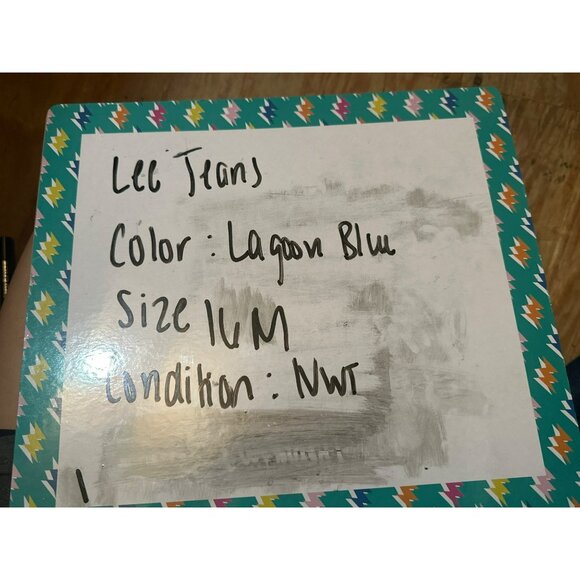 Lee Jeans
Color: Lagoon Blue
Size 16M
Condition: NWT